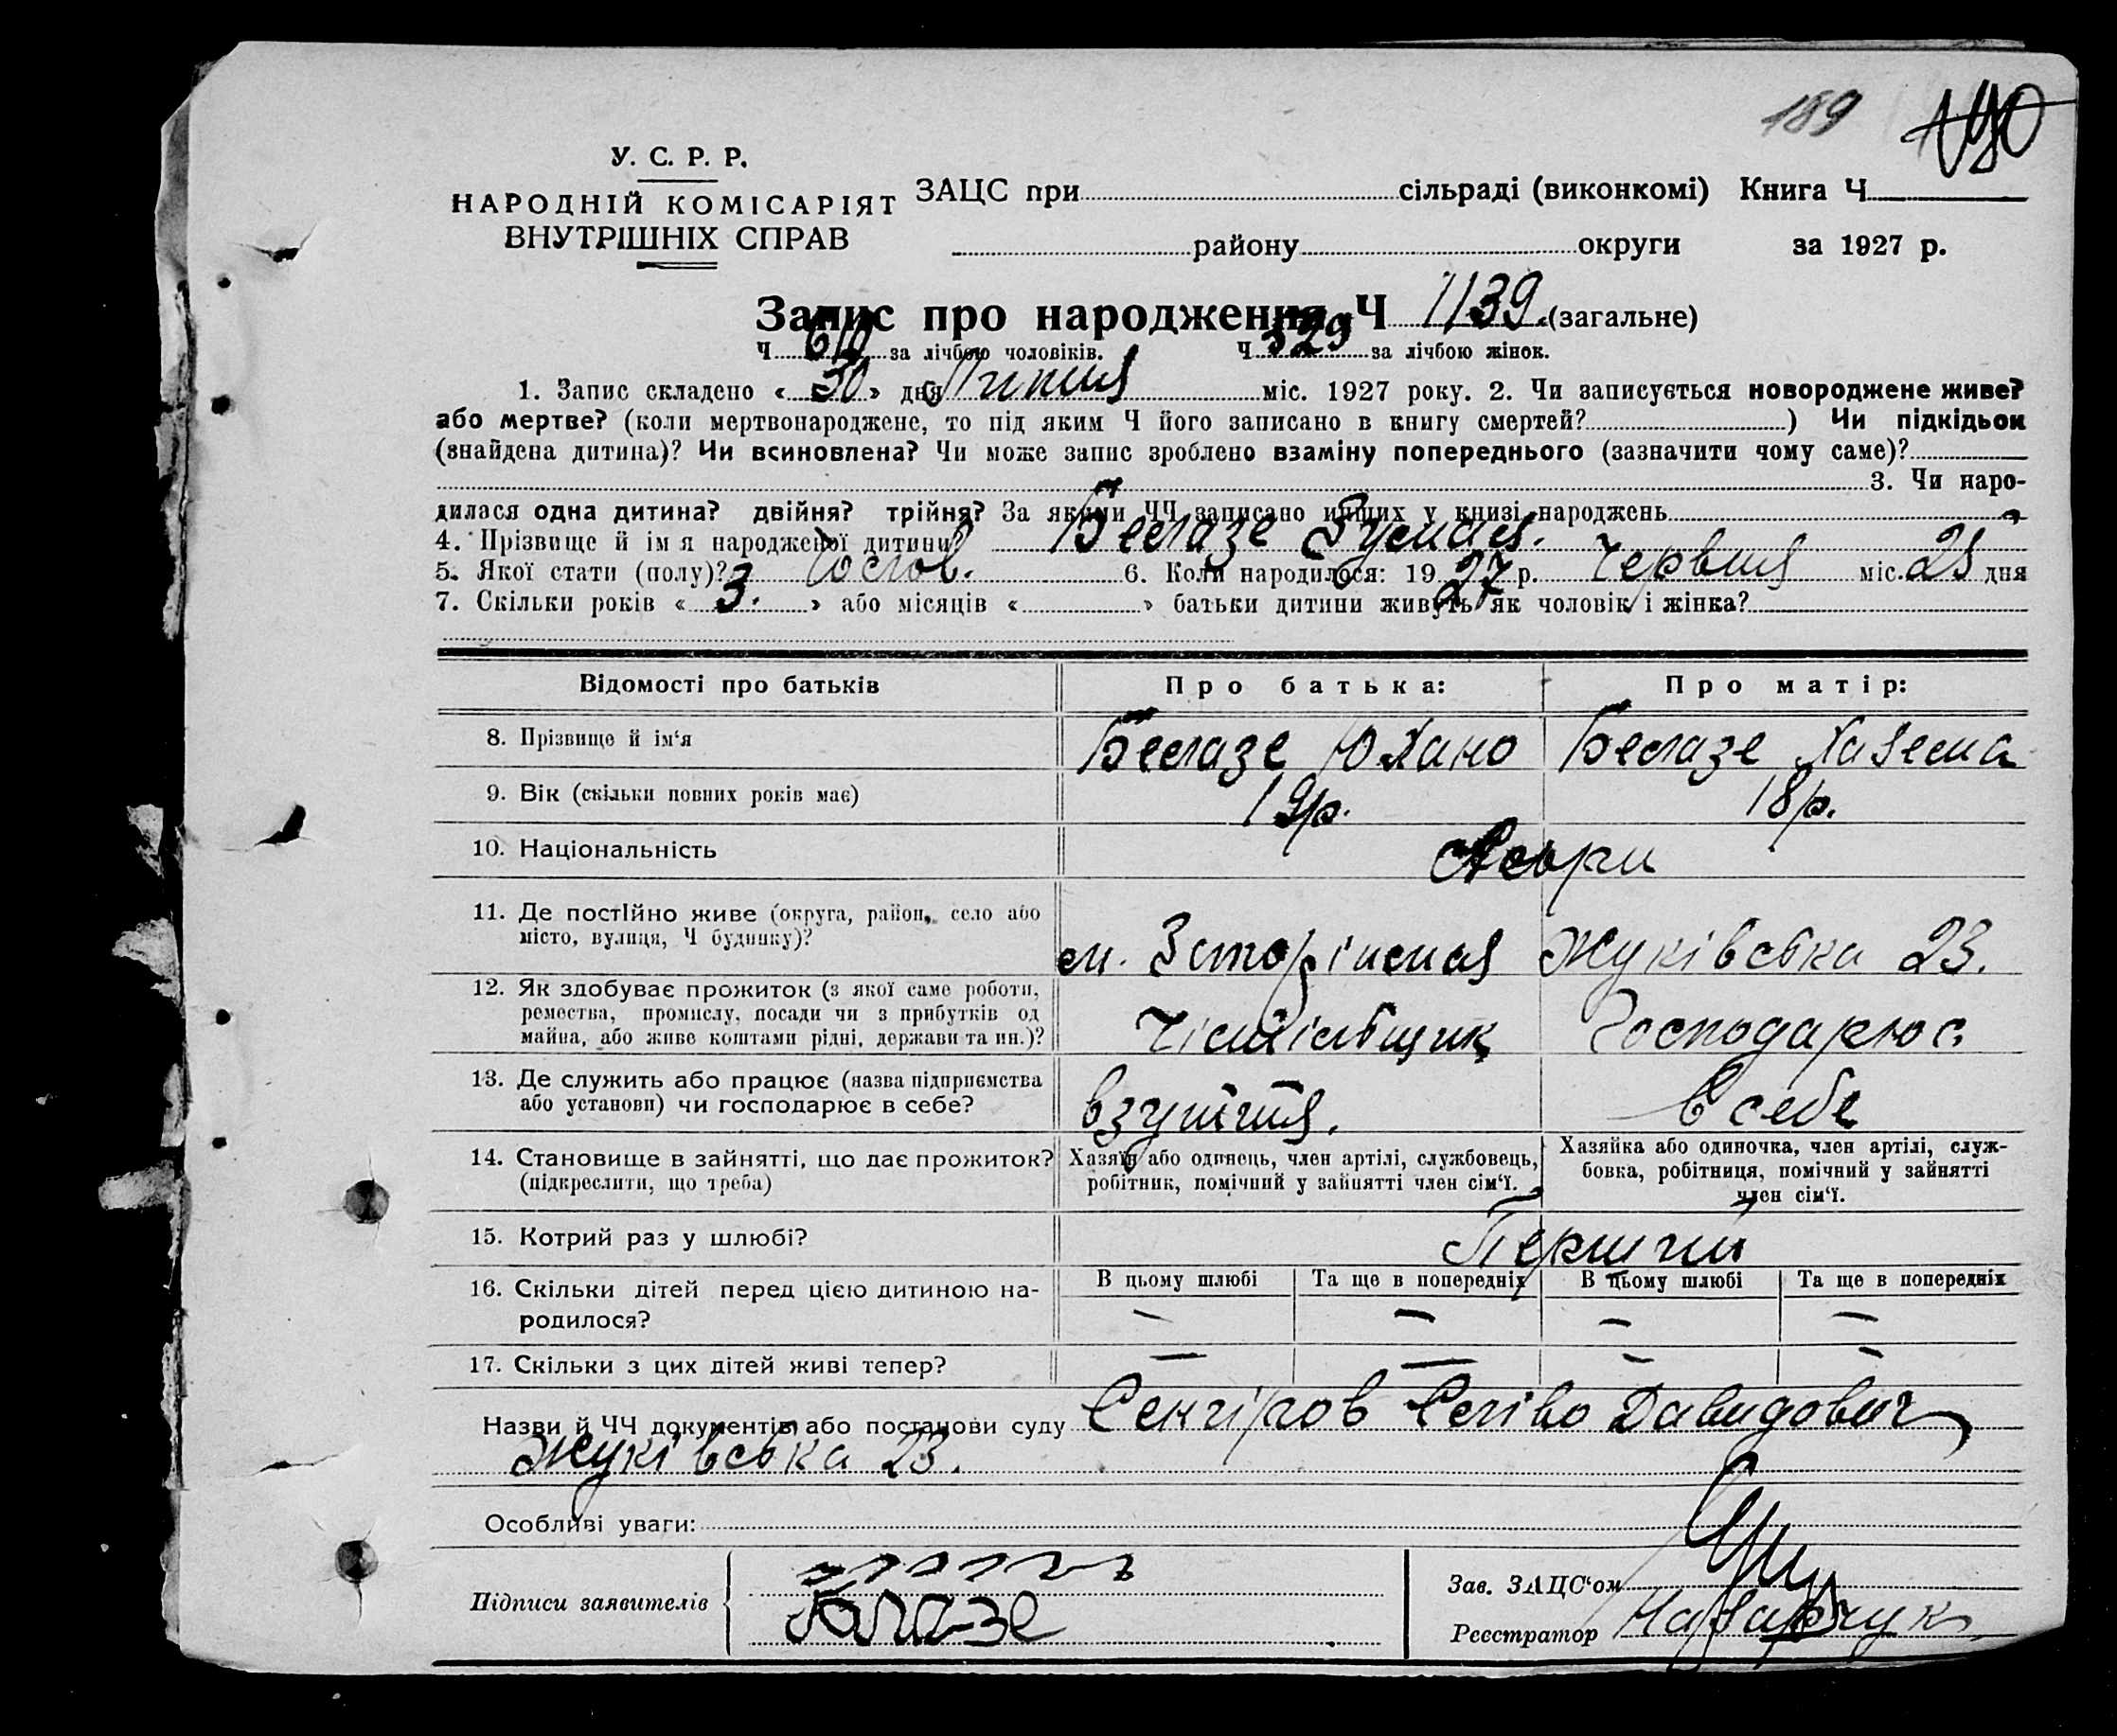 189 190
У. С. Р. Р.
НАРОДНІЙ КОМІСАРІЯТ
ВНУТРІШНІХ СПРАВ
ЗАЦС при сільраді (виконкомі) Книга Ч
району округи за 1927 р.
Запис про народження Ч 1139 (загальне)
Ч 610 за лічбою чоловіків. Ч 529 за лічбою жінок.
1. Запис складено « 30 » дня Липня міс. 1927 року. 2. Чи записується новороджене живе?
або мертве? (коли мертвонароджене, то під яким Ч його записано в книгу смертей? ) Чи підкідьок
(знайдена дитина)? Чи всиновлена? Чи може запис зроблено взаміну попереднього (зазначити чому саме)?
3. Чи наро-
дилася одна дитина? двійня? трійня? За якими ЧЧ записано инших у книзі народжень
4. Прізвище й ім я народженої дитини?
5. Якої стати (полу)? Чолов. 6. Коли народилося: 19 27 р. Червня міс. 25 дня
7. Скільки років « 3. » або місяців « » батьки дитини живуть як чоловік і жінка?
Відомості про батьків Про батька: Про матір:
8. Прізвище й ім'я
9. Вік (скільки повних років має) 19р. 18р.
10. Національність
11. Де постійно живе (округа, район, село або
місто, вулиця, Ч будинку)? Жуківська 23.
12. Як здобуває прожиток (з якої саме роботи,
ремества, промислу, посади чи з прибутків од
майна, або живе коштами рідні, держави та ин.)? Господарює
13. Де служить або працює (назва підприємства
або установи) чи господарює в себе? взуття. В себе
14. Становище в зайнятті, що дає прожиток?
(підкреслити, що треба)
Хазяїн або одинець, член артілі, службовець,
робітник, помічний у зайнятті член сім'ї.
Хазяйка або одиночка, член артілі, служ-
бовка, робітниця, помічний у зайнятті
член сім'ї.
15. Котрий раз у шлюбі? Перший
16. Скільки дітей перед цією дитиною на-
родилося?
В цьому шлюбі Та ще в попередніх В цьому шлюбі Та ще в попередніх
— — — —
17. Скільки з цих дітей живі тепер? — — — —
Назви й ЧЧ документів або постанови суду Давидович
Жуківська 23.
Особливі уваги:
Підписи заявителів
Зав. ЗАЦС'ом
Реєстратор Назарчук